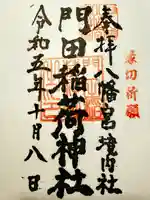 縁切祈願
奉拝 八幡宮境内社
門田稲荷神社
令和五年十月八日